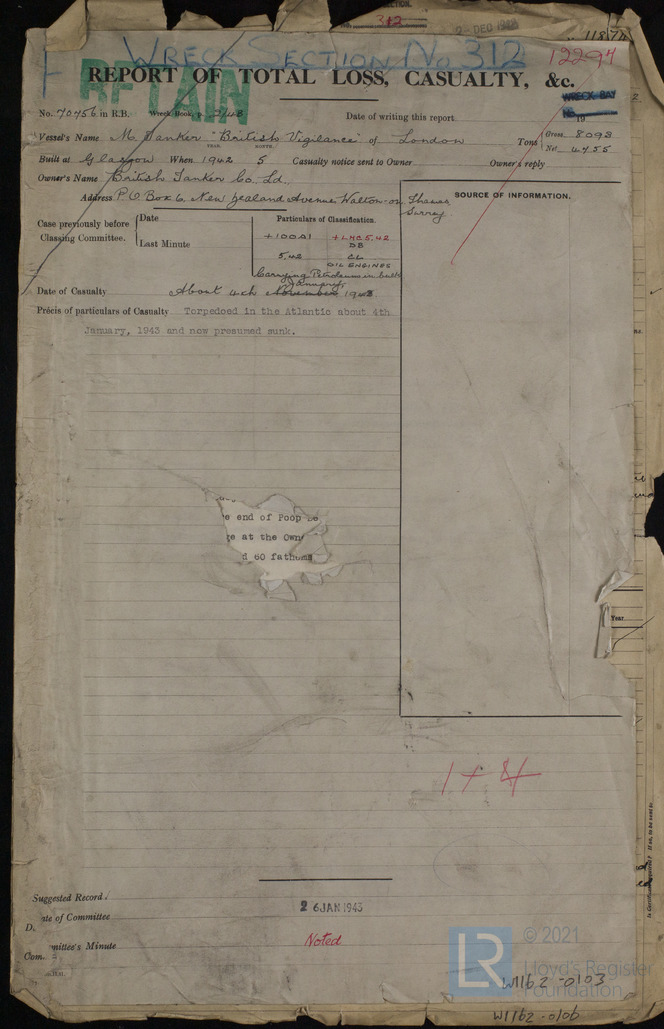 SECTION.
312
DEC
WRECK SECTION No 312
12294
RETAIN
REPORT OF TOTAL LOSS, CASUALTY, &c.
WRECK BAY
No. 19
No. 70456 in R.B. Wreck Book, p.
Date of writing this report
Vessel's Name M. Tanker "British Vigilance" of London
Tons Gross 8093
Net 4755
YEAR. MONTH.
Built at Glasgow When 1942 5 Casualty notice sent to Owner Owner's reply
Owner's Name British Tanker Co. Ld.,
Address P O Box 6, New Zealand Avenue Walton-on Thames
Surrey
SOURCE OF INFORMATION.
Case previously before
Classing Committee.
Date
Last Minute
Particulars of Classification.
+100A1 +LMC 5,42
DB
5,42 CL
OIL ENGINES
Carrying Petroleum in bulk
January
Date of Casualty About 4th November 194
Précis of particulars of Casualty Torpedoed in the Atlantic about 4th
January, 1943 and now presumed sunk.
end of Poop
at the Own
60 fathoms
Year
1 + 4
Suggested Record
Date of Committee
26 JAN 1943
Committee's Minute
Noted
LR © 2021
Lloyd's Register
Foundation
W1162-0103
W1162-0106